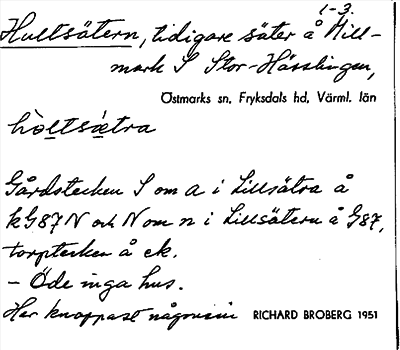 1-3.
Hultsätern, tidigare säter å Mill-
mark S Stor-Hässlingen,
Östmarks sn, Fryksdals hd, Värml. län
hòltsä̀tra
Gårdstecken S om a i Lillsätra å
kG87N och N om n i Lillsätern å G87,
torptecken å ek.
- Öde inga hus.
Har knappast någonsin RICHARD BROBERG 1951